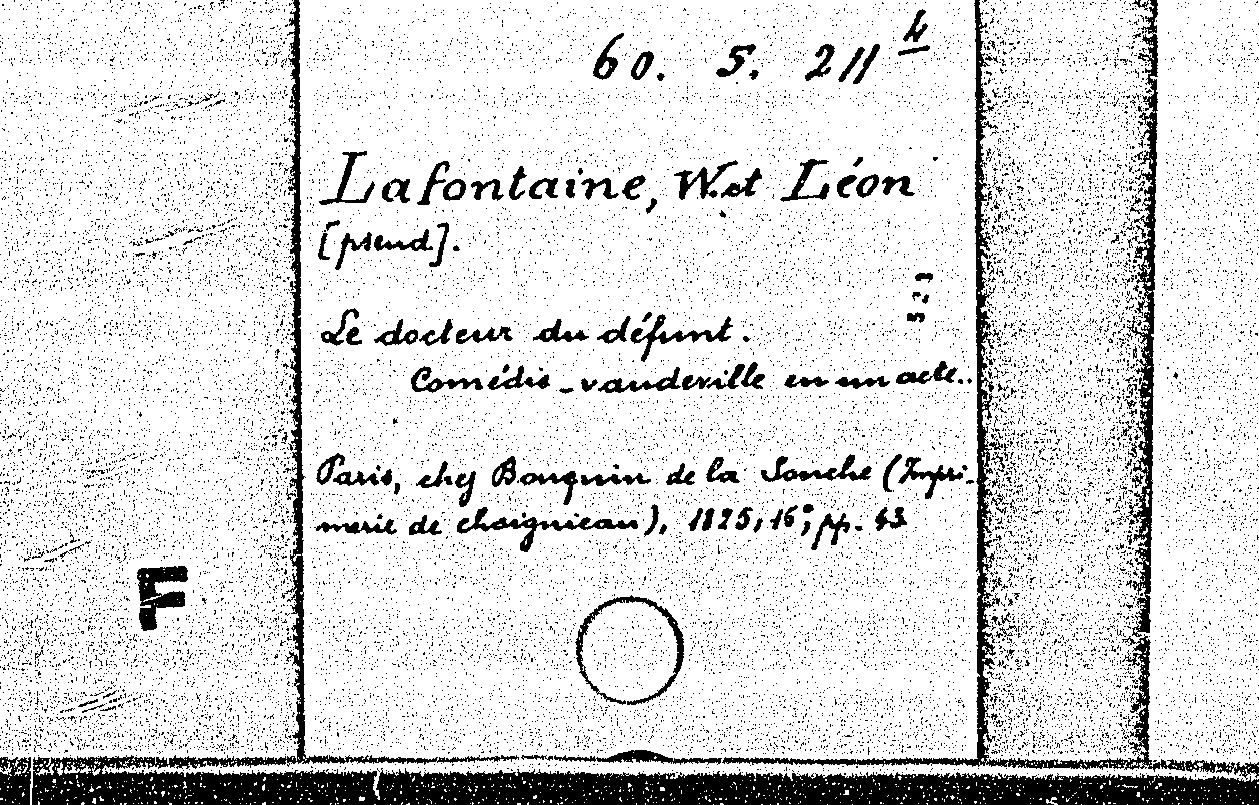 60. 5. 211 4
Lafontaine, W. et Léon
[pseud].
323
Le docteur du défunt.
Comédie-vaudeville en un acte..
Paris, chez Bouquin de la Souche (Impri-
merie de Chaignieau), 1825, 16°, pp. 43
F